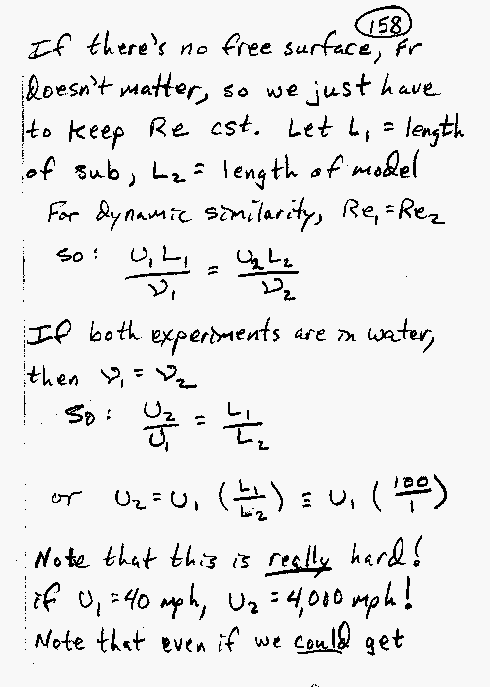 158
If there's no free surface, Fr
doesn't matter, so we just have
to keep Re cst. Let L₁ = length
of sub, L₂ = length of model
For dynamic similarity, Re₁ = Re₂
so: U₁L₁/ν₁ = U₂L₂/ν₂
If both experiments are in water,
then ν₁ = ν₂
So: U₂/U₁ = L₁/L₂
or U₂ = U₁ (L₁/L₂) = U₁ (100/1)
Note that this is really hard!
if U₁ = 40 mph, U₂ = 4,000 mph!
Note that even if we could get